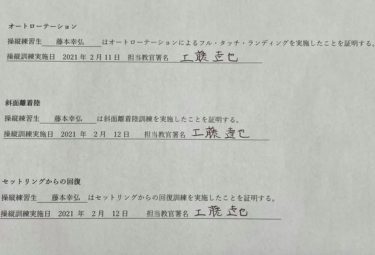 オートローテーション
操縦練習生 藤本幸弘 はオートローテーションによるフル・タッチ・ランディングを実施したことを証明する。
操縦訓練実施日 2021 年 2 月 11 日 担当教官署名 工藤達也
斜面離着陸
操縦練習生 藤本幸弘 は斜面離着陸訓練を実施したことを証明する。
操縦訓練実施日 2021 年 2 月 12 日 担当教官署名 工藤達也
セットリングからの回復
操縦練習生 藤本幸弘 はセットリングからの回復訓練を実施したことを証明する。
操縦訓練実施日 2021 年 2 月 12 日 担当教官署名 工藤達也